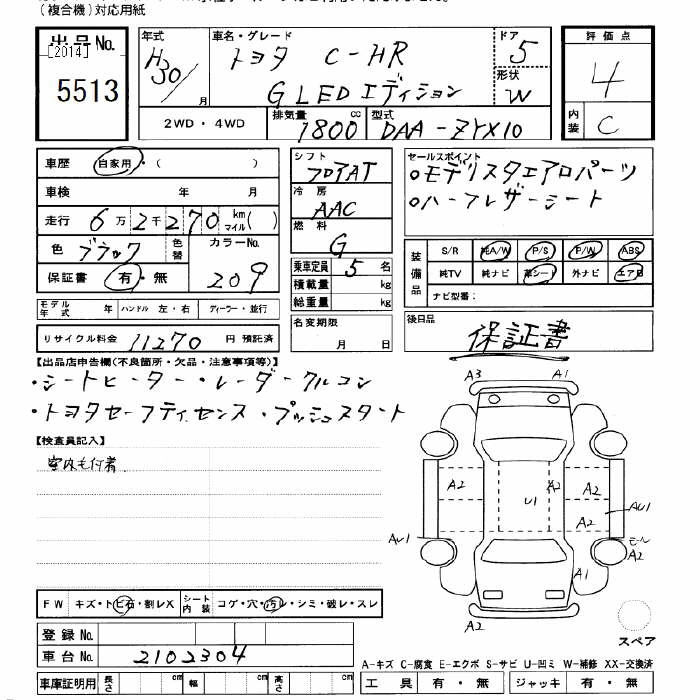 (複合機)対応用紙
出品No.
[2014]
5513
年式
H30/
月
車名・グレード
トヨタ C-HR
G LED エディション
ドア
5
形状
W
評価点
4
内装
C
2WD・4WD
排気量
1800
cc
型式
DAA-ZYX10
車歴 自家用・( )
車検 年 月
走行 6万2千270 km マイル( )
色 ブラック 色替
カラーNo.
209
保証書 有・無
モデル年式 年 ハンドル 左・右 ディーラー・並行
リサイクル料金 11270 円 預託済
シフト
フロアAT
冷房
AAC
燃料
G
乗車定員 5 名
積載量 kg
総重量 kg
名変期限
月 日
セールスポイント
○モデリスタエアロパーツ
○ハーフレザーシート
装備品
S/R 純A/W P/S P/W ABS
純TV 純ナビ 革シート 外ナビ エアB
ナビ型番:
後日品
保証書
【出品店申告欄(不良箇所・欠品・注意事項等)】
・シートヒーター・レーダークルコン
・トヨタセーフティセンス・プッシュスタート
【検査員記入】
室内毛付着
A3 A1
A2 U1 A2 A2 A2
AU1 AU1
モール A2
A1
A2
スペア
FW キズ・トビ石・割レX
シート内装 コゲ・穴・汚レ・シミ・破レ・スレ
登録No.
車台No. 2102304
A-キズ C-腐食 E-エクボ S-サビ U-凹ミ W-補修 XX-交換済
車庫証明用 長さ cm 幅 cm 高さ cm
工具 有・無 ジャッキ 有・無